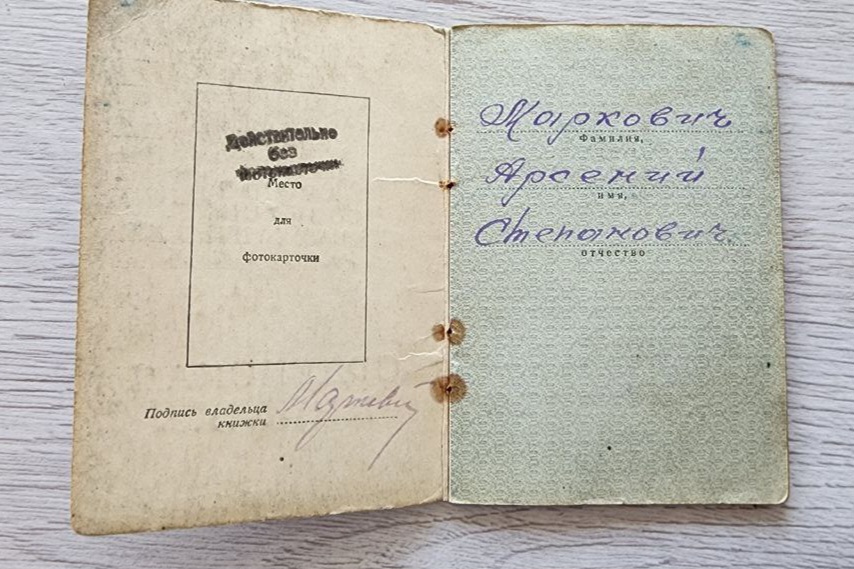 Действительно
без
фотокарточки
Место
для
фотокарточки
Подпись владельца
книжки
Маркович
Фамилия,
Арсений
имя,
Степанович
отчество